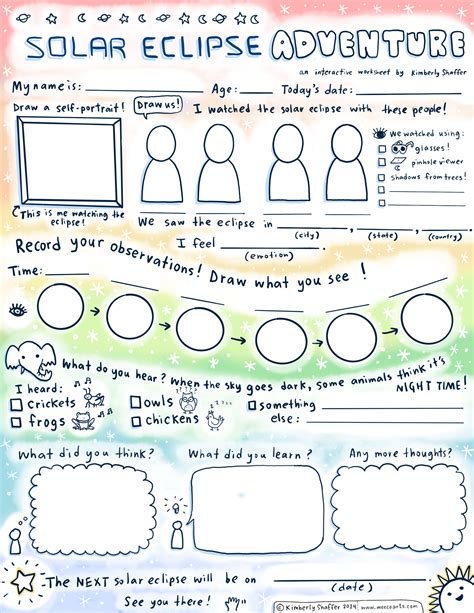 SOLAR ECLIPSE ADVENTURE
an interactive worksheet by Kimberly Shaffer
My name is: Age: Today's date:
Draw a self-portrait! Draw us! I watched the solar eclipse with these people!
We watched using:
glasses!
pinhole viewer
shadows from trees!
This is me watching the eclipse!
We saw the eclipse in , , .
(city) (state) (country)
I feel .
(emotion)
Record your observations! Draw what you see!
Time:
What do you hear? When the sky goes dark, some animals think it's
NIGHT TIME!
I heard:
crickets owls something
frogs chickens else:
What did you think? What did you learn? Any more thoughts?
The NEXT solar eclipse will be on
(date)
See you there!
© Kimberly Shaffer 2024 | www.meecoarts.com